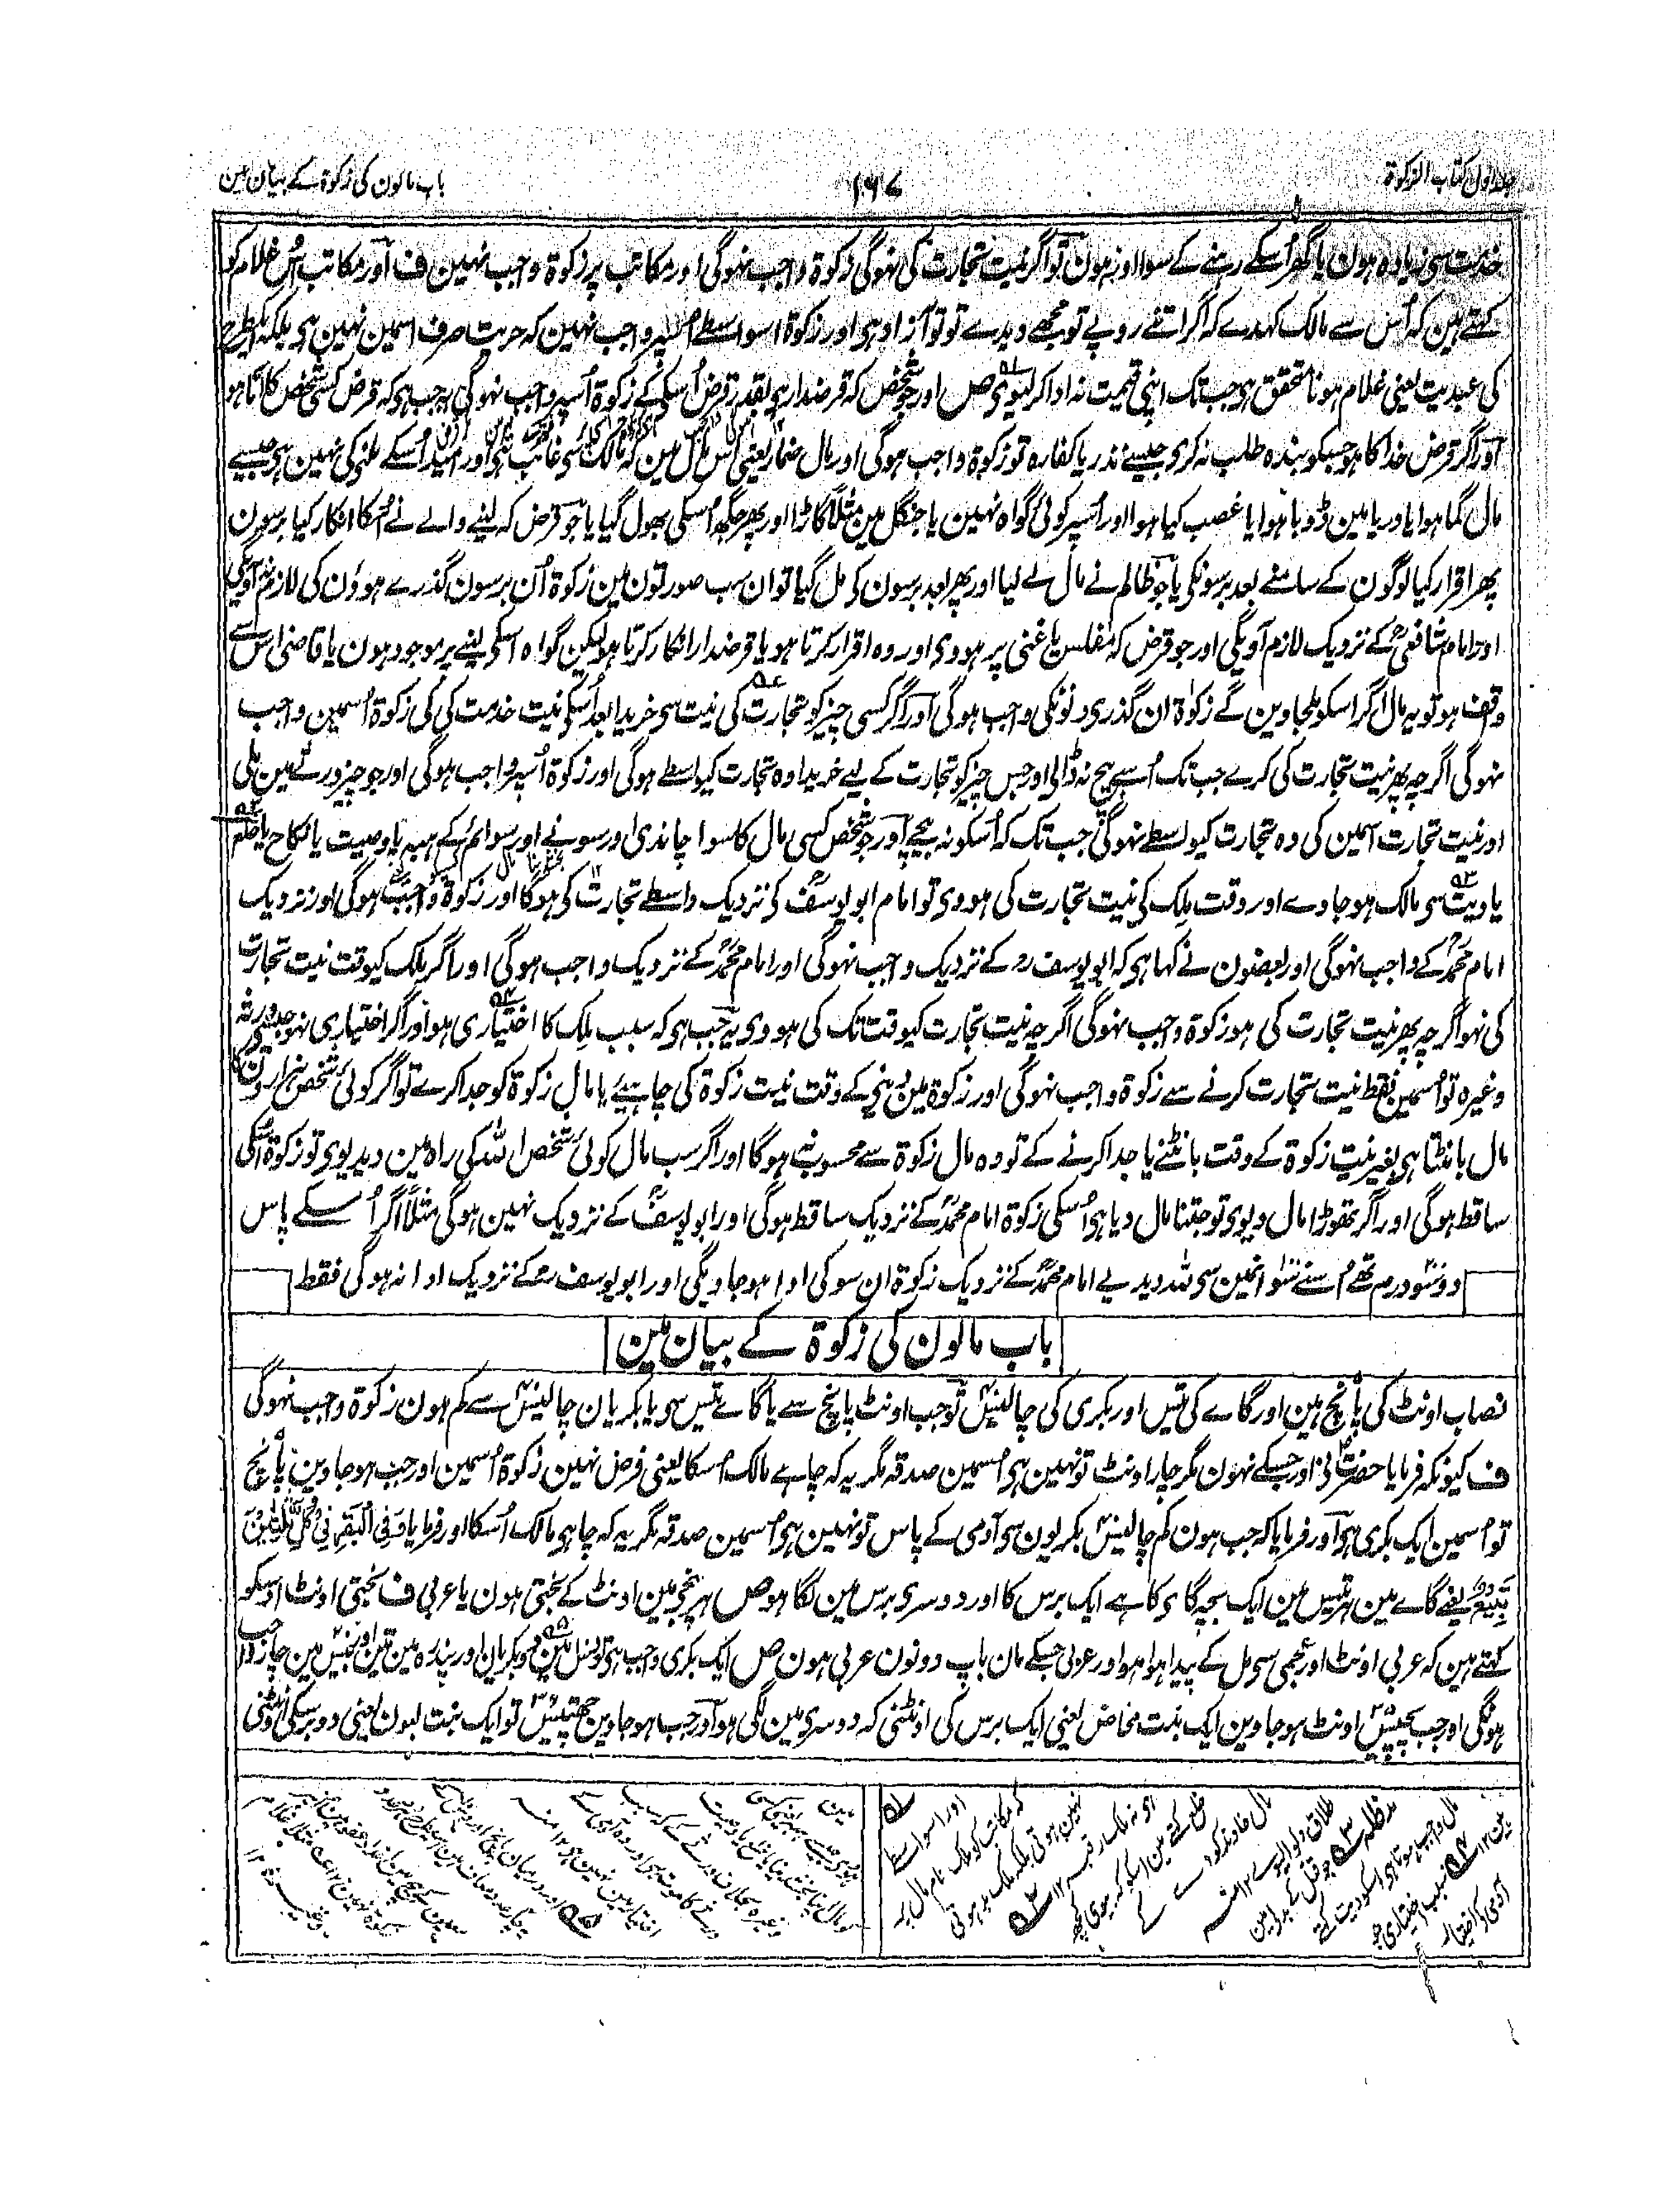 جلد اول کتاب الزکوٰۃ
۱۶۷
باب مالون کی زکوٰۃ کے بیان مین
خدمت سی زیادہ ہون یا گھر اُسکے رہنے کے سوا اور ہون تو اگر نیت تجارت کی نہوگی زکوٰۃ واجب نہوگی اور مکاتب پر زکوٰۃ واجب نہین ف اور مکاتب اُس غلام کو
کہتے ہین کہ اُس سے مالک کہدے کہ اگر اتنے روپے تو مجھے دیدے تو تو آزاد ہی اور زکوٰۃ اسواسطے اُسپر واجب نہین کہ حریت صرف اسمین نہین ہی بلکہ
کی عبدیت یعنی غلام ہونا متحقق ہی جب تک اپنی قیمت نہ ادا کر لیوی ص اور جو شخص کہ قرضدار ہی بقدر قرض اُسکے زکوٰۃ اُسپر واجب نہوگی یہ جب ہی کہ قرض کسی شخص کا آتا ہو
اور اگر قرض خدا کا ہو جسکو بندہ طلب نہ کری جیسے نذر یا کفارہ تو زکوٰۃ واجب ہوگی اور مال ضمار یعنی اُس مال مین کہ مالک سی غائب ہی اور امید اُسکے ملنی کی نہین ہی جیسے
مال گما ہوا یا دریا مین ڈوبا ہوا یا غصب کیا ہوا اور اُسپر کوئی گواہ نہین یا جنگل مین مثلاً گاڑا اور پھر جگھ اُسکی بھول گیا یا جو قرض کہ لینے والے نے اُسکا انکار کیا برسون
پھر اقرار کیا لوگون کے سامنے بعد برسونکی یا جو ظالم نے مال لے لیا اور پھر بعد برسون کی مل گیا تو ان سب صورتون مین زکوٰۃ اُن برسون گذرے ہوؤن کی لازم نہ آویگی
اور امام شافعیؒ کے نزدیک لازم آویگی اور جو قرض کہ مفلس یا غنی پر ہووی اور وہ اقرار کرتا ہو یا قرضدار انکار کرتا ہو لیکن گواہ اسکی لینے پر موجود ہون یا قاضی اس سے
وقف ہو تو یہ مال اگر اسکو ملجاوین گے زکوٰۃ ان گذری دنونکی واجب ہوگی اور اگر کسی چیز کو تجارت کی نیت سی خریدا بعد اُسکی نیت خدمت کی کی زکوٰۃ اُسمین واجب
نہوگی اگرچہ پھر نیت تجارت کی کرے جب تک اُسے بیچ نہ ڈالی اور جس چیز کو تجارت کے لیے خریدا وہ تجارت کیواسطے ہوگی اور زکوٰۃ اُسپر واجب ہوگی اور جو چیز ورثے مین ملی
اور نیت تجارت اسمین کی وہ تجارت کیواسطے نہوگی جب تک کہ اُسکو نہ بیچے اور جو شخص کسی مال کا سوا چاندی اور سونے اور سوائم کے ہبہ یا وصیت یا نکاح یا خلع
یا دیت سی مالک ہو جاوے اور وقت ملک کی نیت تجارت کی ہووی تو امام ابو یوسفؒ کی نزدیک واسطے تجارت کی ہوگا اور زکوٰۃ واجب ہوگی اور نزدیک
امام محمدؒ کے واجب نہوگی اور بعضون نے کہا ہی کہ ابو یوسف رح کے نزدیک واجب نہوگی اور امام محمدؒ کے نزدیک واجب ہوگی اور اگر ملک کیوقت نیت تجارت
کی نہو اگرچہ پھر نیت تجارت کی ہو زکوٰۃ واجب نہوگی اگرچہ نیت تجارت کیوقت تک کی ہووی یہ جب ہی کہ سبب ملک کا اختیاری ہو اور اگر اختیاری نہو جیسے ورثہ
وغیرہ تو اُسمین فقط نیت تجارت کرنے سے زکوٰۃ واجب نہوگی اور زکوٰۃ مین دینے کے وقت نیت زکوٰۃ کی چاہیئے یا مال زکوٰۃ کو جدا کرے تو اگر کوئی شخص ہزارون
مال بانٹتا ہی بغیر نیت زکوٰۃ کے وقت بانٹنے یا جدا کرنے کے تو وہ مال زکوٰۃ سے محسوب نہ ہوگا اور اگر سب مال کوئی شخص اللہ کی راہ مین دیدیوی تو زکوٰۃ اُسکی
ساقط ہوگی اور اگر تھوڑا مال دیوی تو جتنا مال دیا ہی اُسکی زکوٰۃ امام محمدؒ کے نزدیک ساقط ہوگی اور ابو یوسفؒ کے نزدیک نہین ہوگی مثلاً اگر اُسکے پاس
دو سو درم تھے اُسنے سو انمین سی للہ دیدیے امام محمدؒ کے نزدیک زکوٰۃ ان سو کی ادا ہو جاویگی اور ابو یوسف رح کے نزدیک ادا نہ ہوگی فقط
باب مالون کی زکوٰۃ کے بیان مین
نصاب اونٹ کی پانچ ہین اور گاے کی تیس اور بکری کی چالیس تو جب اونٹ پانچ سے یا گاے تیس سی یا بکریان چالیس سے کم ہون زکوٰۃ واجب نہوگی
ف کیونکہ فرمایا حضرت نی اور جسکے نہون مگر چار اونٹ تو نہین ہی اُسمین صدقہ مگر یہ کہ چاہے مالک اُسکا یعنی فرض نہین زکوٰۃ اُسمین اور جب ہو جاوین پانچ
تو اُسمین ایک بکری ہی اور فرمایا کہ جب ہون کم چالیس بکریون سی آدمی کے پاس تو نہین ہی اُسمین صدقہ مگر یہ کہ چاہی مالک اُسکا اور فرمایا فی البقر فی کل ثلٰثین
تبیع یعنے گاے مین ہر تیس مین ایک بچہ گاے کا ہے ایک برس کا اور دوسری برس مین لگا ہو ص ہر پنج مین اونٹ کے بختی ہون یا عربی ف بختی اونٹ اوسکو
کہتے ہین کہ عربی اونٹ اور عجمی سی مل کے پیدا ہوا ہو اور عربی جسکے مان باپ دونون عربی ہون ص ایک بکری واجب ہی تو دس مین دو بکریان اور پندرہ مین تین اور بیس مین چار
ہونگی اور جب پچیس اونٹ ہو جاوین ایک بنت مخاض یعنی ایک برس کی اونٹنی کہ دوسری مین لگی ہو اور جب ہو جاوین چھتیس تو ایک بنت لبون یعنی دو برسکی اونٹنی